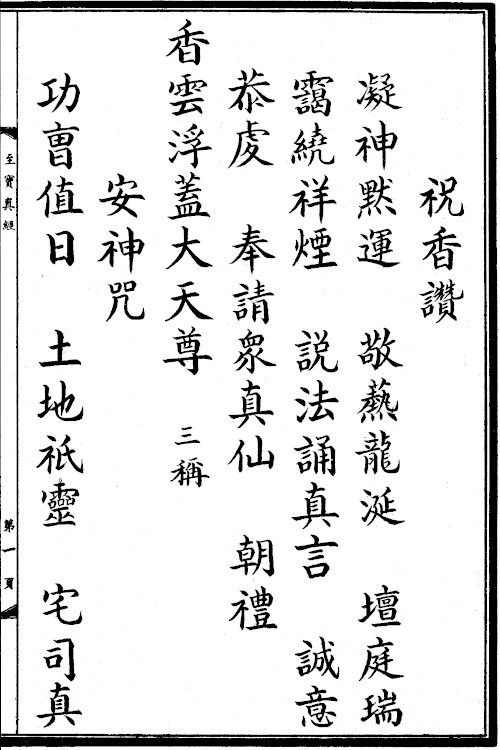 祝香讚
凝神默運　敬爇龍涎　壇庭瑞
靄繞祥煙　説法誦真言　誠意
恭虔　奉請衆真仙　朝禮
香雲浮蓋大天尊　三稱
安神咒
功曺值日　土地祇靈　宅司真
至寶真經
第一頁